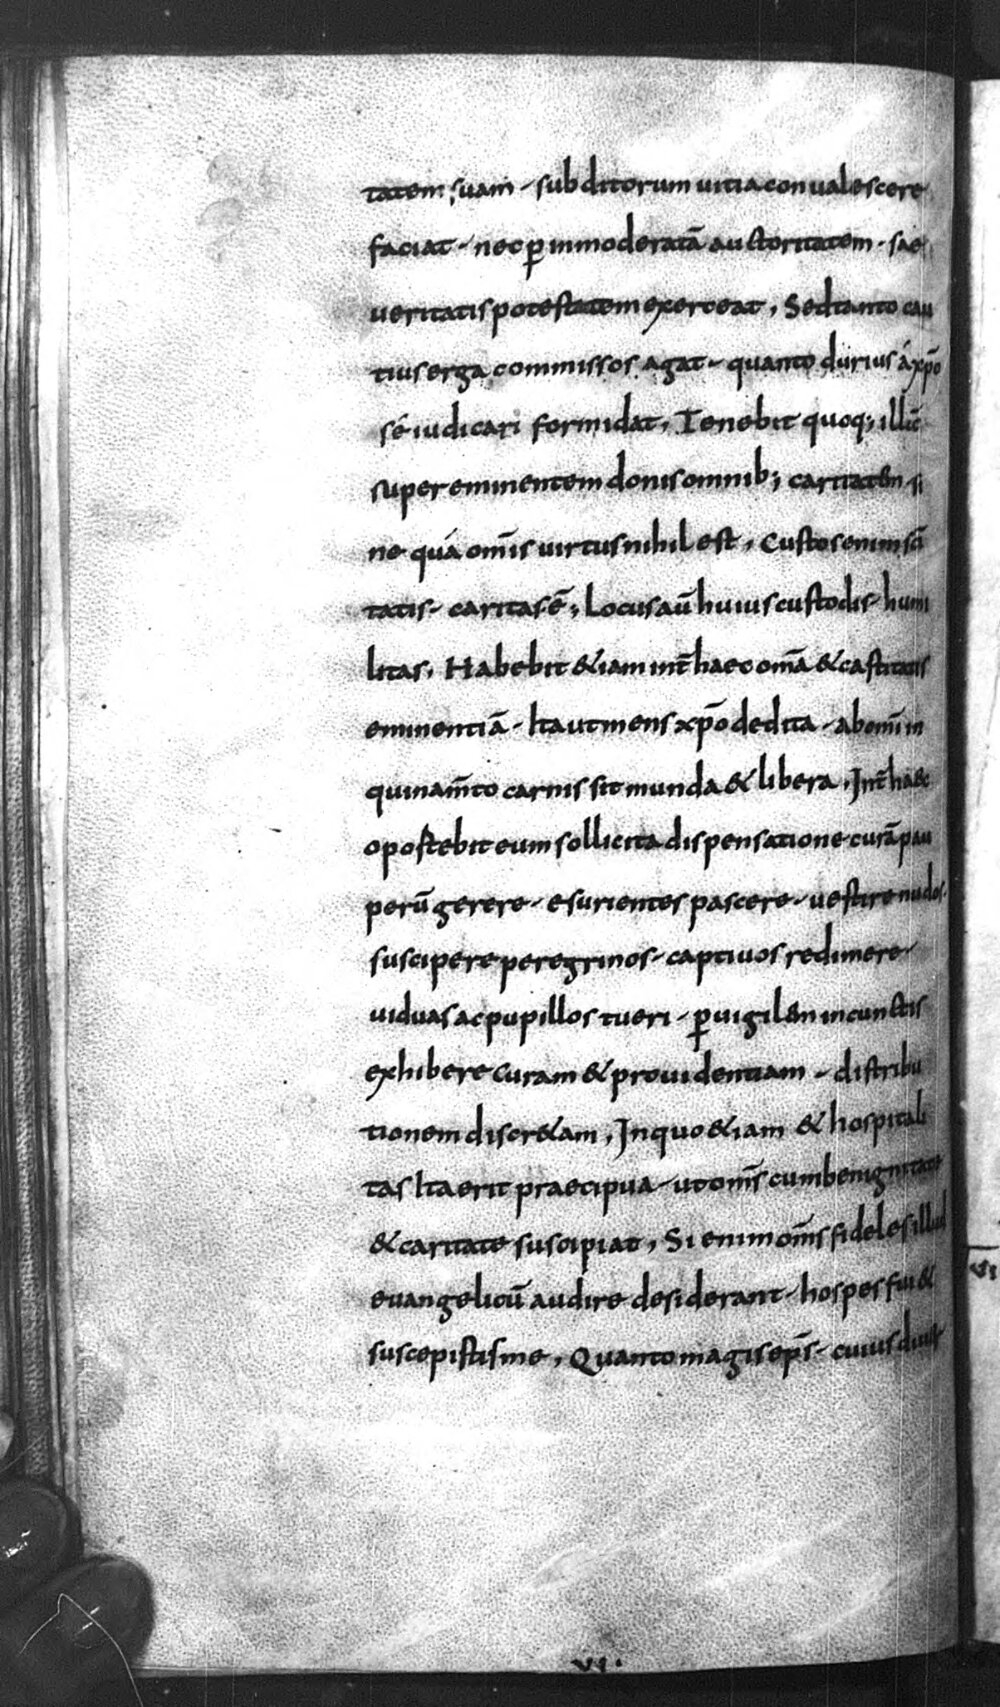 tatem suam - subditorum uitia conualescere
faciat - nec ꝑ inmoderatā auctoritatem - sae
ueritatis potestatem exerceat, Sed tanto cau
tius erga commissos agat - quanto durius á xp̄o
sé iudicari formidat, Tenebit quoq; illā
super eminentem donis omnib; caritatem - si
ne quá om̄is uirtus nihil est, Custos enim sc̄i
tatis - caritas ē; Locus aū huius custodis - humi
litas, Habebit &iam int̄ haec om̄a & castitatis
eminentiā - Ita ut mens xp̄o dedita - ab om̄i in
quinam̄to carnis sit munda & libera, Int̄ haec
opostebit eum sollicita dispensatione curā pau
perū gerere - esurientes pascere - uestire nudos -
suscipere peregrinos - captiuos redimere -
uiduas ac pupillos tueri - ꝑuigilem in cunctis
exhibere curam & prouidentiam - distribu
tionem discr&am, In quo &iam & hospitali
tas Ita erit praecipua - ut om̄s cum benignitate
& caritate suscipiat, Si enim om̄s fideles illud
euangelicū audire desiderant - hospes fui &
suscepistis me, Quanto magis ep̄s - cuius diuer
VI
VI.